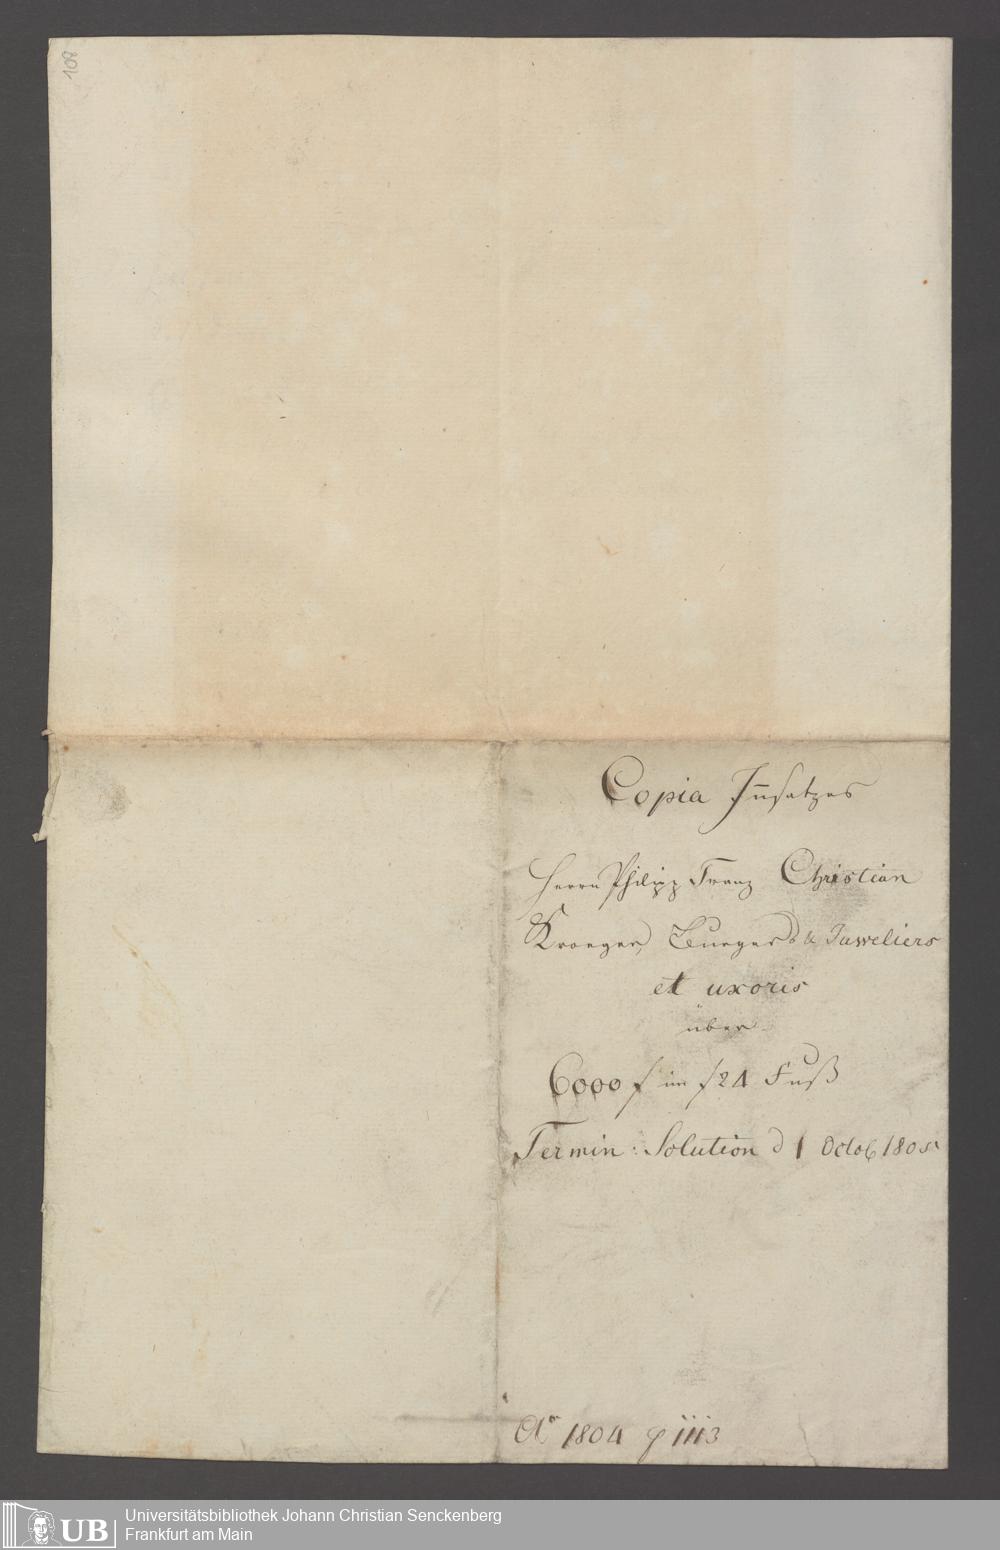 108
Copia Innsatzes
Herrn Philipp Franz Christian
Kroeger, Burgers & Juweliers
et uxoris
über
6000 f im f 24 Fuß
Termin: Solution d 1 Octob 1805
Ao 1804 p 1113
UB
Universitätsbibliothek Johann Christian Senckenberg
Frankfurt am Main